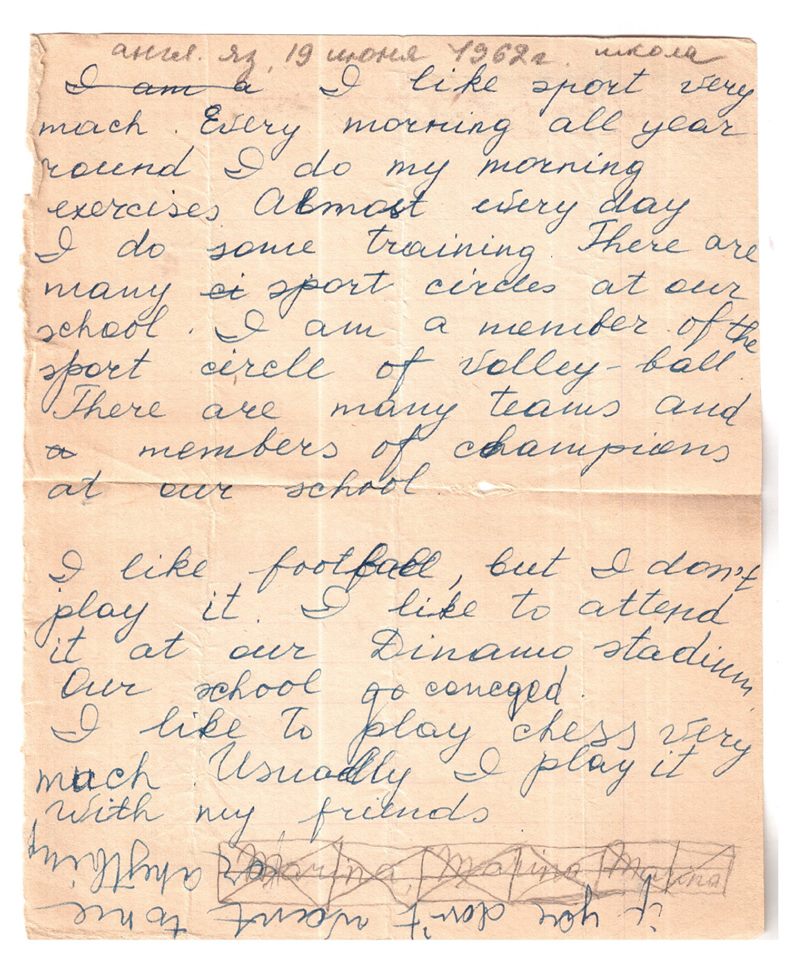 англ. яз, 19 июня 1962г. школа
I am a I like sport very
mach. Every morning all year
round I do my morning
exercises Almost every day
I do some training. There are
many ci sport circles at our
school. I am a member of the
sport circle of volley-ball.
There are many teams and
a members of champions
at our school
I like football, but I don't
play it. I like to attend
it at our Dinamo stadium.
Our school go
I like to play chess very
much. Usually I play it
with my friends
Marina, Marina Marina
if you don't want to me
anything